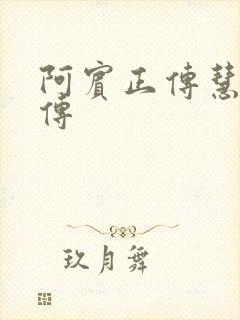 阿賓正傳慧
傳
玖月舞